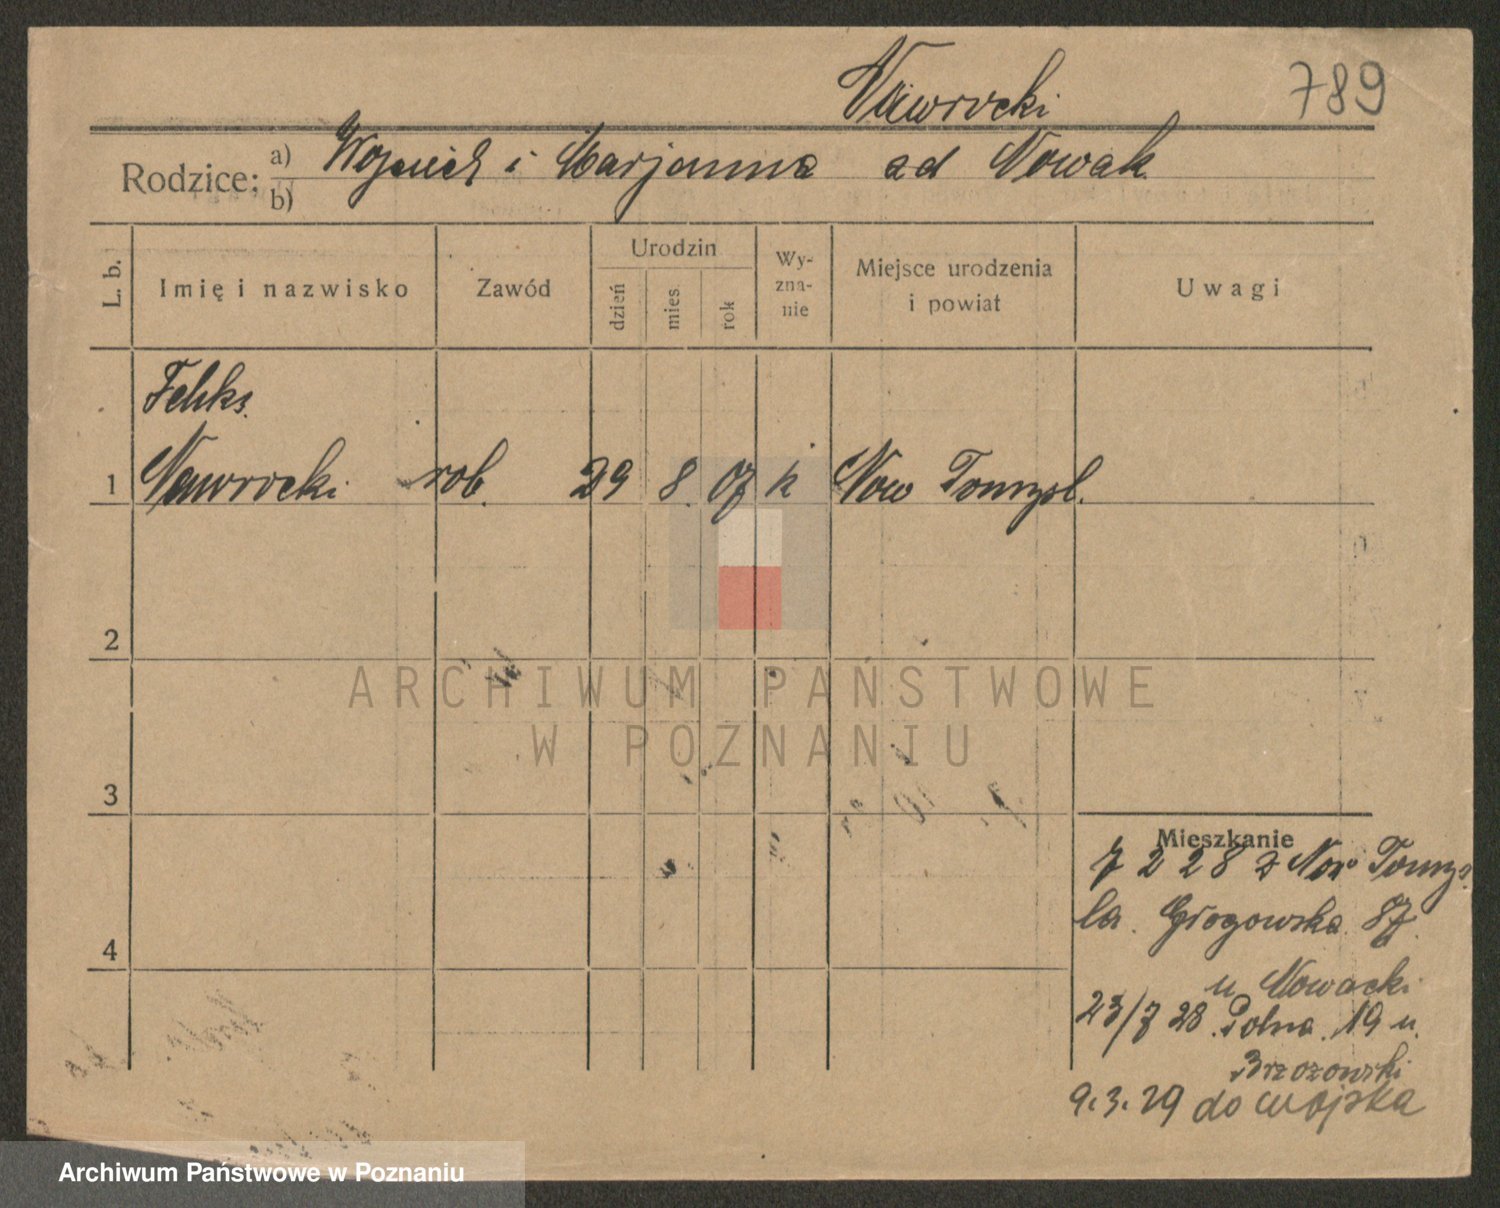 Nawrocki 789
Rodzice: a) Wojciech i Marjanna ad Nowak
b)
L. b. Imię i nazwisko Zawód Urodzin dzień mies. rok Wy-zna-nie Miejsce urodzenia i powiat Uwagi
Feliks
1 Nawrocki rob. 29 8. 07 k Now Tomysl.
2
ARCHIWUM PAŃSTWOWE
W POZNANIU
3
Mieszkanie
7 2 28 z Now Tomys
la. Głogowska 87
4
u Nowacki
23/7 28. Polna. 19 u.
Brzozowski
9.3.29 do wojska
Archiwum Państwowe w Poznaniu